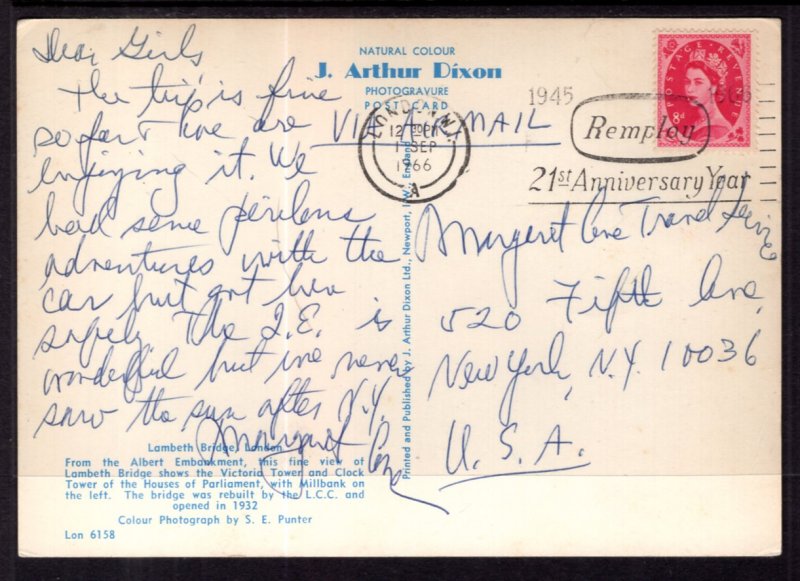 Dear Girls
The trip is fine
so far & we are
enjoying it. We
had some perilous
adventures with the
car but got here
safely. The Q.E. is
wonderful but we never
saw the sun after N.Y.
Margaret Cone
NATURAL COLOUR
J. Arthur Dixon
PHOTOGRAVURE
POST CARD
VIA AIR MAIL
LONDON W.1.
12 30PM
1 SEP
1966
A
1945
Remploy
21st Anniversary Year
POSTAGE REVENUE
8d
Margaret Cone Travel Service
520 Fifth Ave,
New York, N.Y. 10036
U.S.A.
Printed and Published by J. Arthur Dixon Ltd., Newport, I.W., England
Lambeth Bridge, London
From the Albert Embankment, this fine view of
Lambeth Bridge shows the Victoria Tower and Clock
Tower of the Houses of Parliament, with Millbank on
the left. The bridge was rebuilt by the L.C.C. and
opened in 1932
Colour Photograph by S. E. Punter
Lon 6158